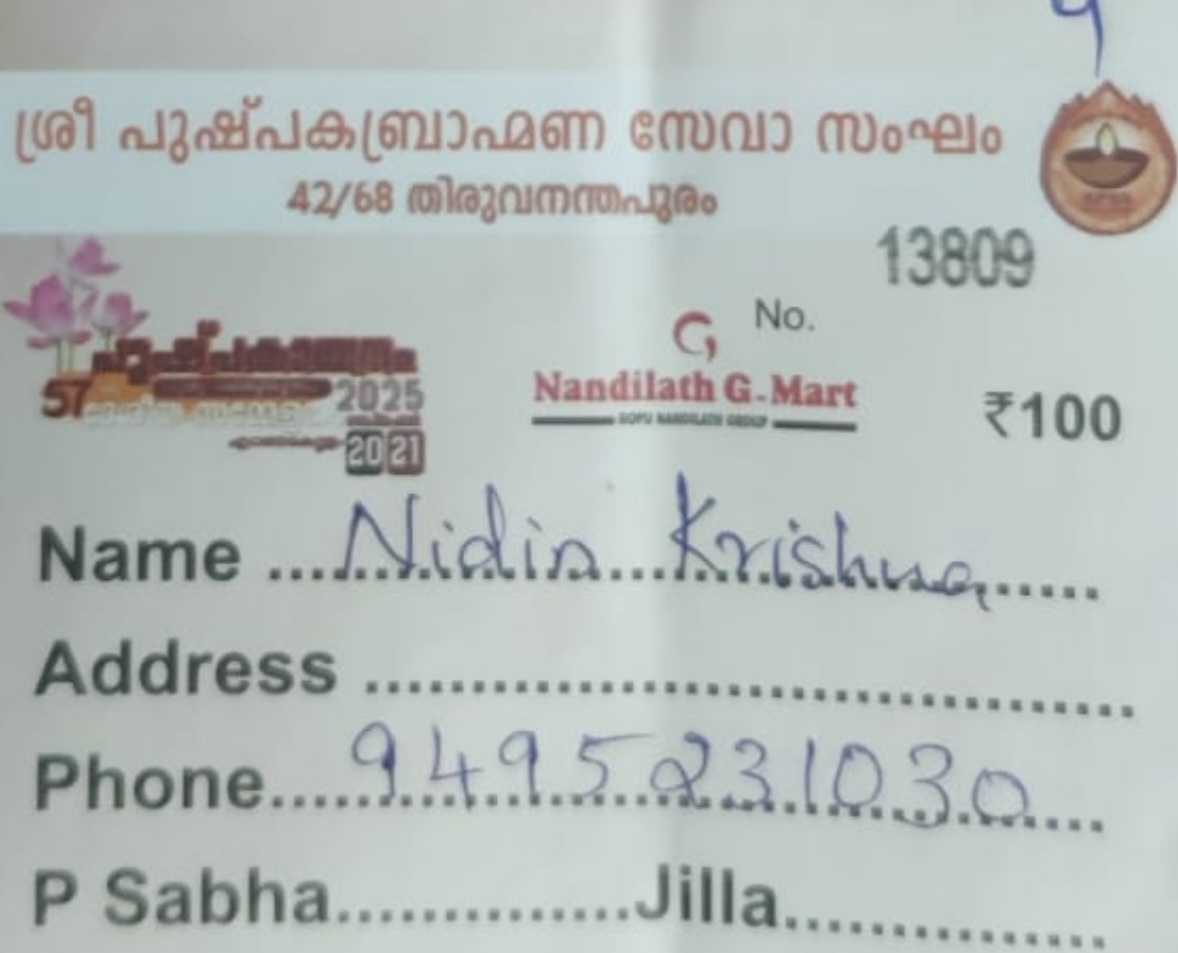 ശ്രീ പുഷ്പകബ്രാഹ്മണ സേവാ സംഘം
42/68 തിരുവനന്തപുരം
13809
No.
57
2025
20 21
Nandilath G-Mart
GOPU NANDILATH GROUP
₹100
Name ... Nidin Krishna ......
Address ..............................
Phone... 9495231030 ...
P Sabha..............Jilla...............